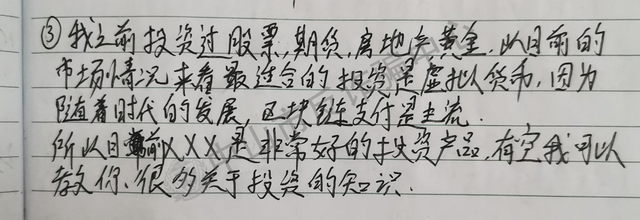 ③我之前投资过股票,期货,房地产黄金.以目前的
市场情况来看最适合的投资是虚拟货币,因为
随着时代的发展,区块链支付是主流.
所以目前XXX是非常好的投资产品,有空我可以
教你,很多关于投资的知识.